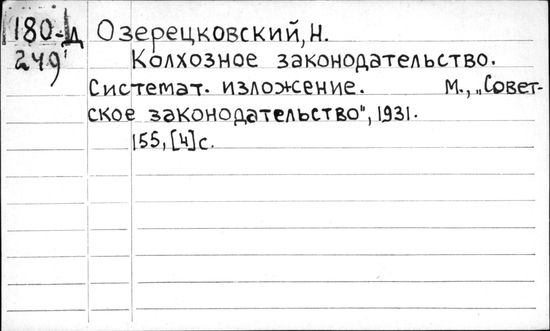 180-д Озерецковский, Н.
249 Колхозное законодательство.
Системат. изложение. М., „Совет-
ское законодательство", 1931.
155, [4] с.